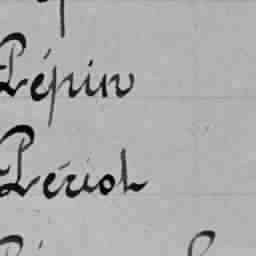 Pépin
Périot